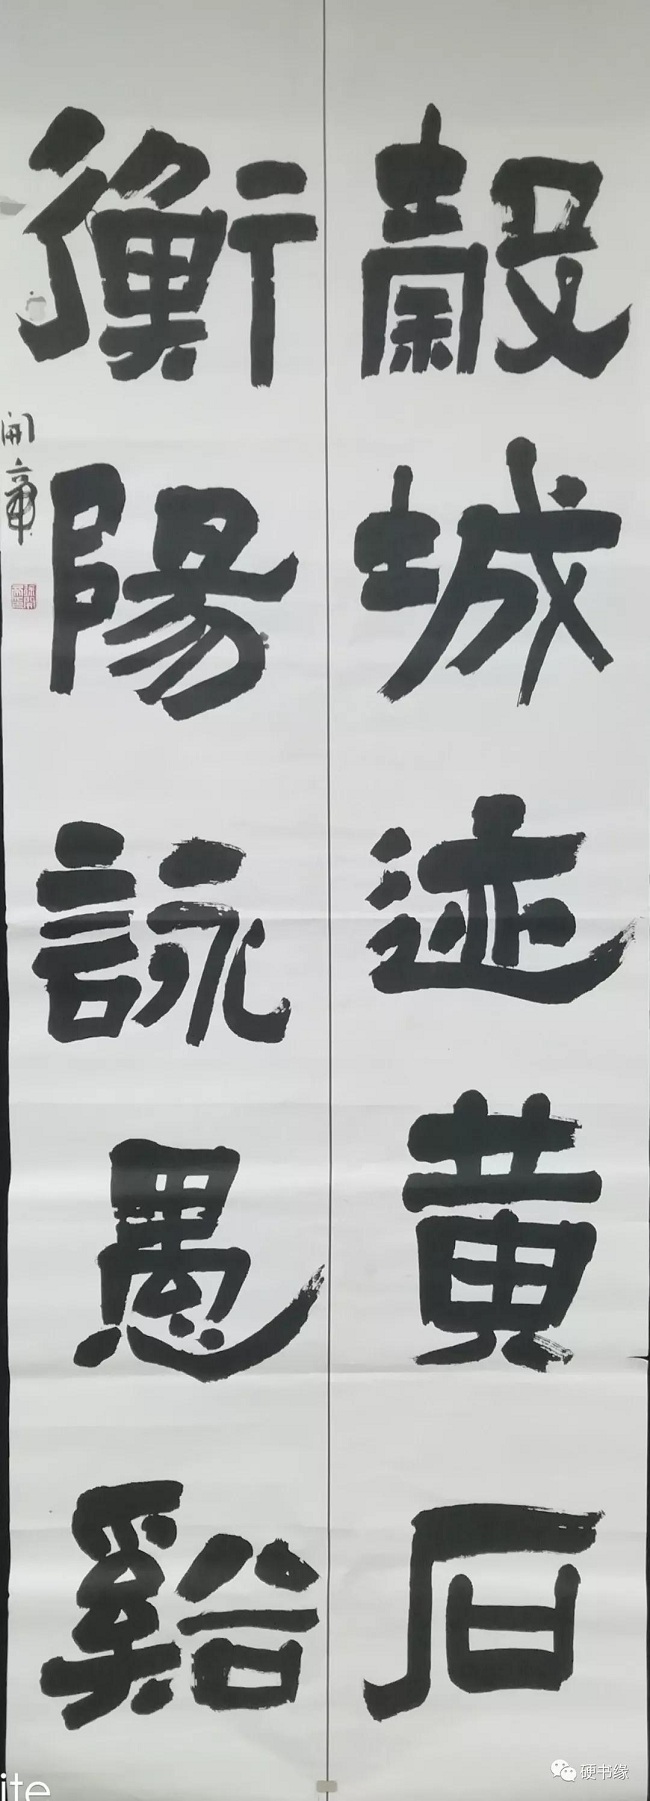 穀城迹黄石
衡陽詠愚谿
開章
硬书缘
ite